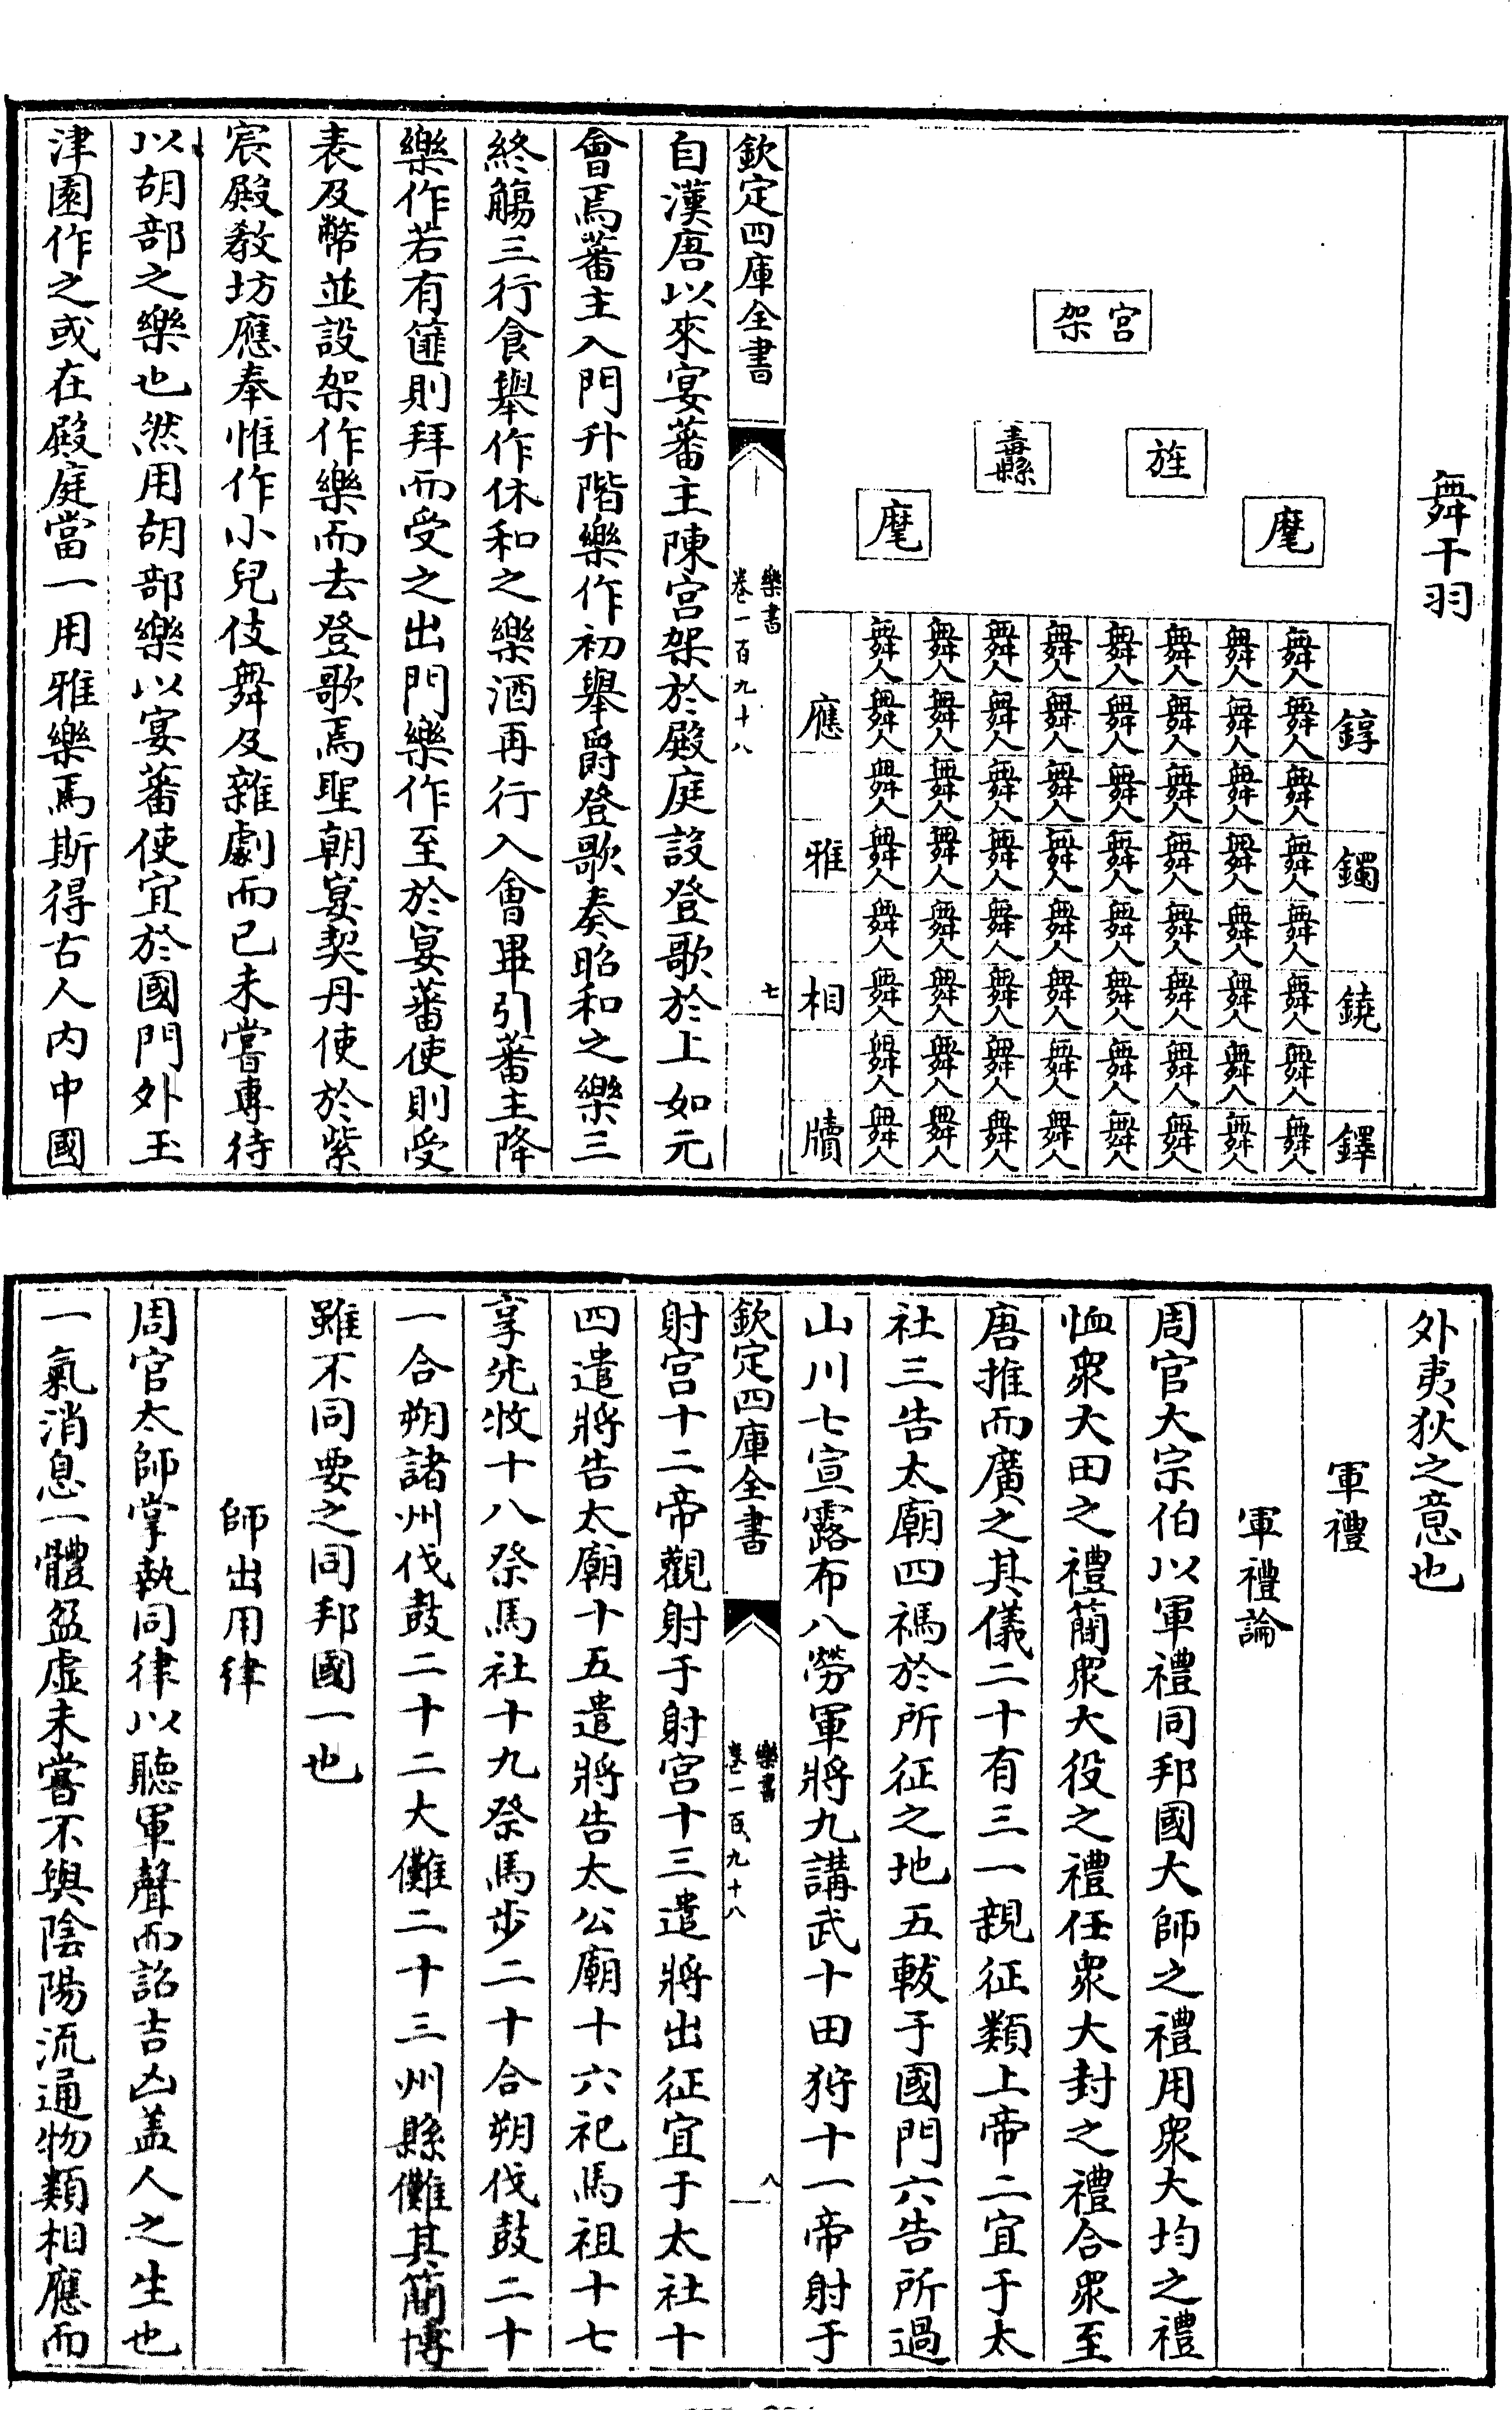 舞干羽
宫架
旌
纛
麾
麾
錞
鐲
鐃
鐸
舞人舞人舞人舞人舞人舞人舞人舞人
舞人舞人舞人舞人舞人舞人舞人舞人
舞人舞人舞人舞人舞人舞人舞人舞人
舞人舞人舞人舞人舞人舞人舞人舞人
舞人舞人舞人舞人舞人舞人舞人舞人
舞人舞人舞人舞人舞人舞人舞人舞人
舞人舞人舞人舞人舞人舞人舞人舞人
舞人舞人舞人舞人舞人舞人舞人舞人
應
雅
相
牘
欽定四庫全書
樂書
卷一百九十八
七
自漢唐以來宴蕃主陳宫架於殿庭設登歌於上如元
會焉蕃主入門升階樂作初舉爵登歌奏昭和之樂三
終觴三行食舉作休和之樂酒再行入會畢引蕃主降
樂作若有篚則拜而受之出門樂作至於宴蕃使則受
表及幣並設架作樂而去登歌焉聖朝宴契丹使於紫
宸殿教坊應奉惟作小兒伎舞及雜劇而已未嘗專待
以胡部之樂也然用胡部樂以宴蕃使宜於國門外玉
津園作之或在殿庭當一用雅樂焉斯得古人内中國
外夷狄之意也
軍禮
軍禮論
周官大宗伯以軍禮同邦國大師之禮用衆大均之禮
恤衆大田之禮簡衆大役之禮任衆大封之禮合衆至
唐推而廣之其儀二十有三一親征類上帝二宜于太
社三告太廟四禡於所征之地五軷于國門六告所過
山川七宣露布八勞軍將九講武十田狩十一帝射于
欽定四庫全書
樂書
卷一百九十八
八
射宫十二帝觀射于射宫十三遣將出征宜于太社十
四遣將告太廟十五遣將告太公廟十六祀馬祖十七
享先牧十八祭馬社十九祭馬步二十合朔伐鼓二十
一合朔諸州伐鼓二十二大儺二十三州縣儺其簡博
雖不同要之同邦國一也
師出用律
周官太師掌執同律以聽軍聲而詔吉凶盖人之生也
一氣消息一體盈虚未嘗不與陰陽流通物類相應而